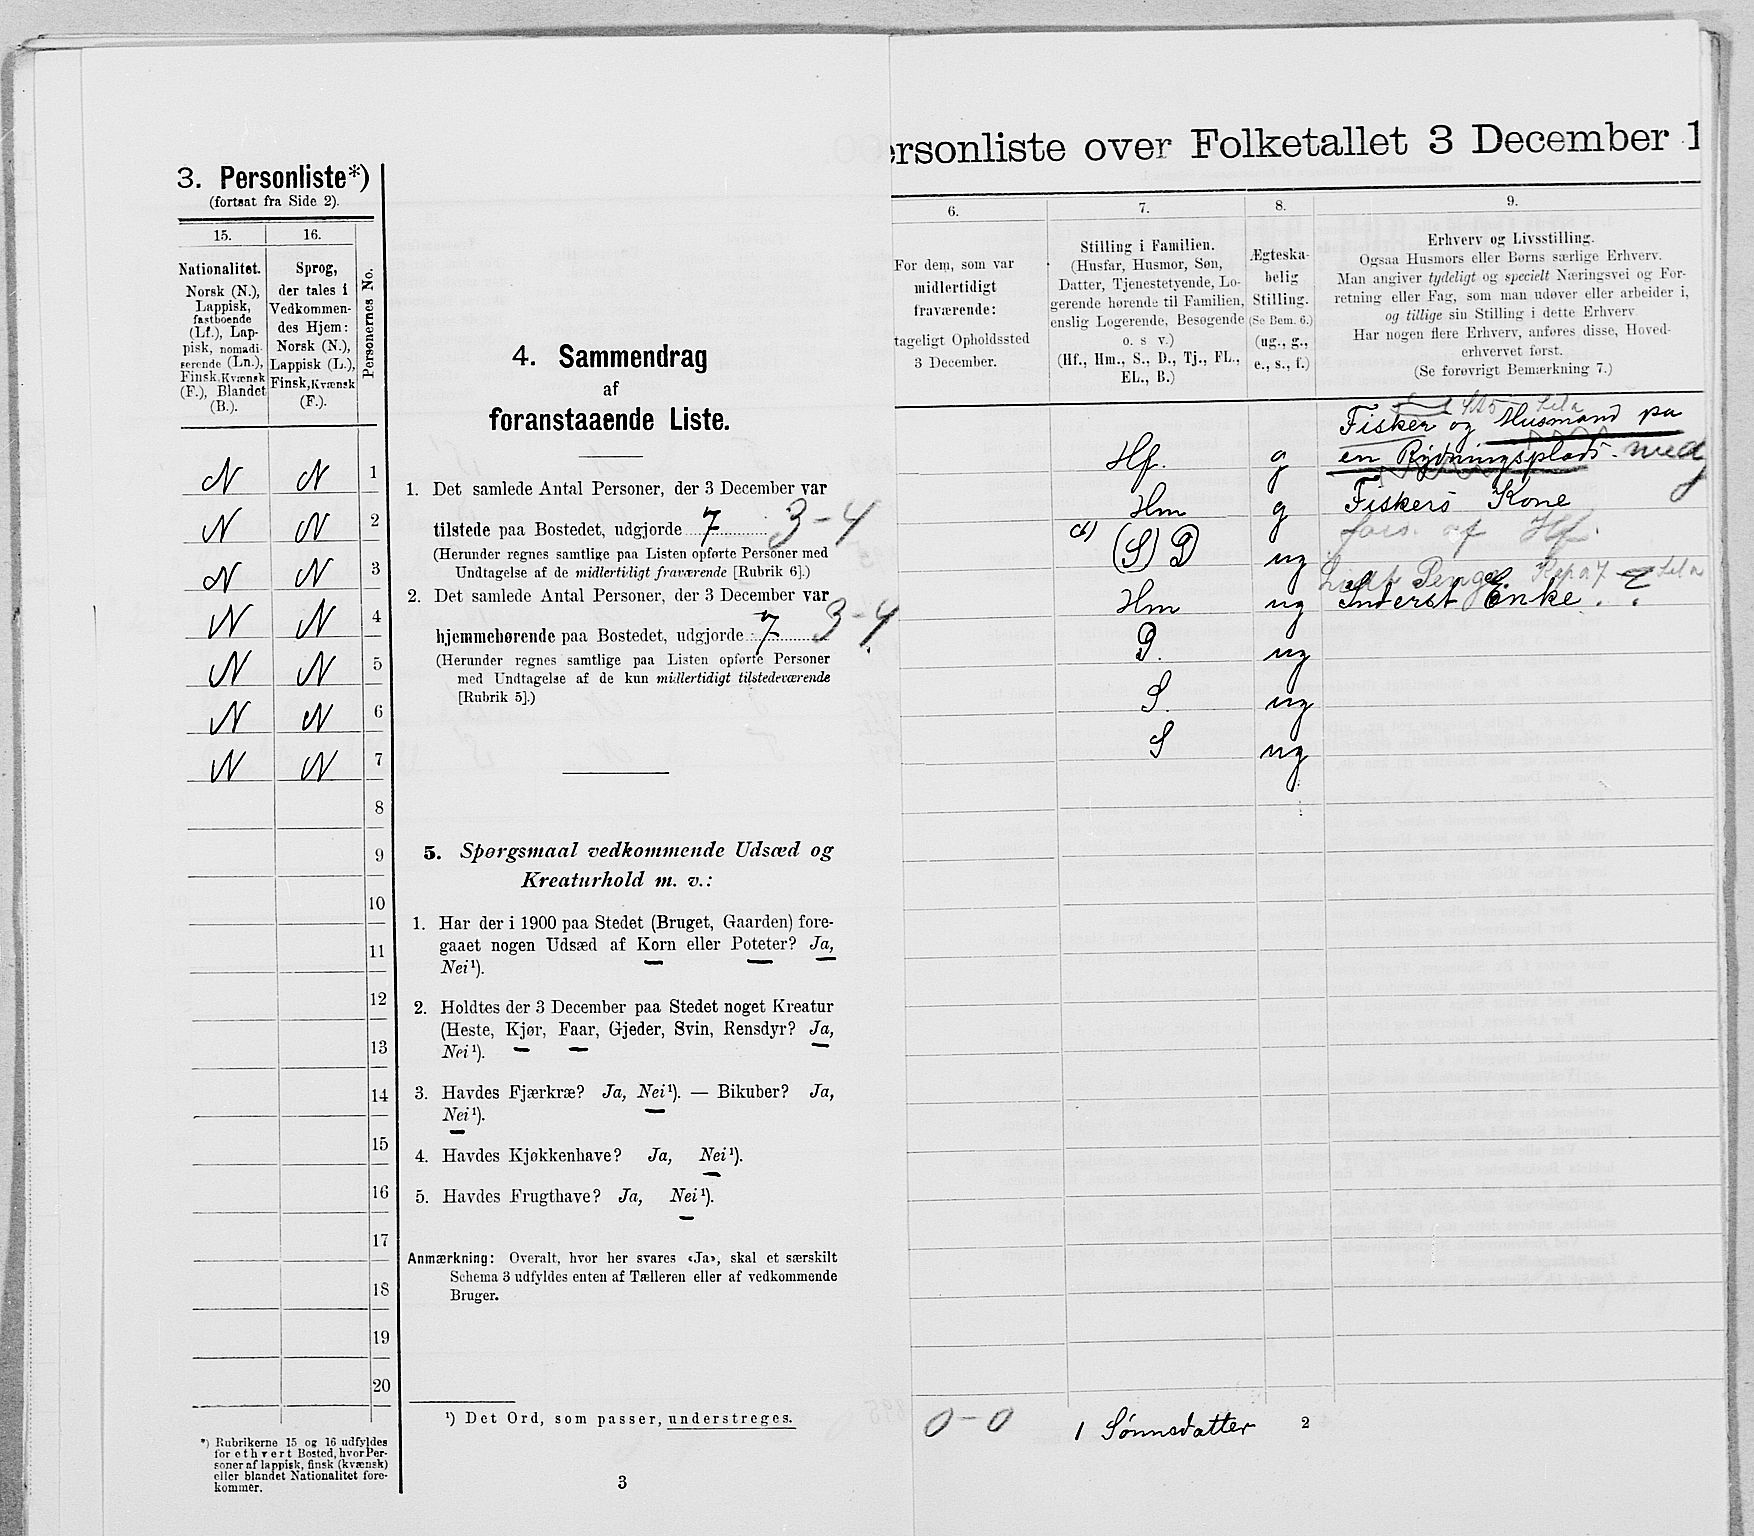 3. Personliste*)
(fortsat fra Side 2).
15.
16.
Personernes No.
Nationalitet.
Norsk (N.),
Lappisk,
fastboende
(Lf.), Lap-
pisk, nomadi-
serende (Ln.),
Finsk, Kvænsk
(F.), Blandet
(B.).
Sprog,
der tales i
Vedkommen-
des Hjem:
Norsk (N.),
Lappisk (L.),
Finsk, Kvænsk
(F.).
N N 1
N N 2
N N 3
N N 4
N N 5
N N 6
N N 7
8
9
10
11
12
13
14
15
16
17
18
19
20
*) Rubrikerne 15 og 16 udfyldes
for ethvert Bosted, hvor Per-
soner af lappisk, finsk (kvænsk)
eller blandet Nationalitet fore-
kommer.
4. Sammendrag
af
foranstaaende Liste.
1. Det samlede Antal Personer, der 3 December var
tilstede paa Bostedet, udgjorde 7 3-4
(Herunder regnes samtlige paa Listen opførte Personer med
Undtagelse af de midlertidigt fraværende [Rubrik 6].)
2. Det samlede Antal Personer, der 3 December var
hjemmehørende paa Bostedet, udgjorde 7 3-4
(Herunder regnes samtlige paa Listen opførte Personer
med Undtagelse af de kun midlertidigt tilstedeværende
[Rubrik 5].)
5. Spørgsmaal vedkommende Udsæd og
Kreaturhold m. v.:
1. Har der i 1900 paa Stedet (Bruget, Gaarden) fore-
gaaet nogen Udsæd af Korn eller Poteter? Ja,
Nei¹).
2. Holdtes der 3 December paa Stedet noget Kreatur
(Heste, Kjør, Faar, Gjeder, Svin, Rensdyr? Ja,
Nei¹).
3. Havdes Fjærkræ? Ja, Nei¹). — Bikuber? Ja,
Nei¹).
4. Havdes Kjøkkenhave? Ja, Nei¹).
5. Havdes Frugthave? Ja, Nei¹).
Anmærkning: Overalt, hvor her svares «Ja», skal et særskilt
Schema 3 udfyldes enten af Tælleren eller af vedkommende
Bruger.
¹) Det Ord, som passer, understreges.
3
ersonliste over Folketallet 3 December 1
6.
7.
8.
9.
For dem, som var
midlertidigt
fraværende:
tageligt Opholdssted
3 December.
Stilling i Familien.
(Husfar, Husmor, Søn,
Datter, Tjenestetyende, Lo-
gerende hørende til Familien,
enslig Logerende, Besøgende
o. s v.)
(Hf., Hm., S., D., Tj., FL.,
EL., B.)
Ægteska-
belig
Stilling.
(Se Bem. 6.)
(ug., g.,
e., s., f.)
Erhverv og Livsstilling.
Ogsaa Husmors eller Børns særlige Erhverv.
Man angiver tydeligt og specielt Næringsvei og For-
retning eller Fag, som man udøver eller arbeider i,
og tillige sin Stilling i dette Erhverv
Har nogen flere Erhverv, anføres disse, Hoved-
erhvervet først.
(Se forøvrigt Bemærkning 7.)
Fisker og Husmand pa
Hf. g en Rydningsplads. med
Hm g Fiskers Kone
(S) D ug fors. af Hf.
Hm ug Inderst Enke. ?
D. ug
S. ug
S ug
0-0
1 Sønnsdatter
2